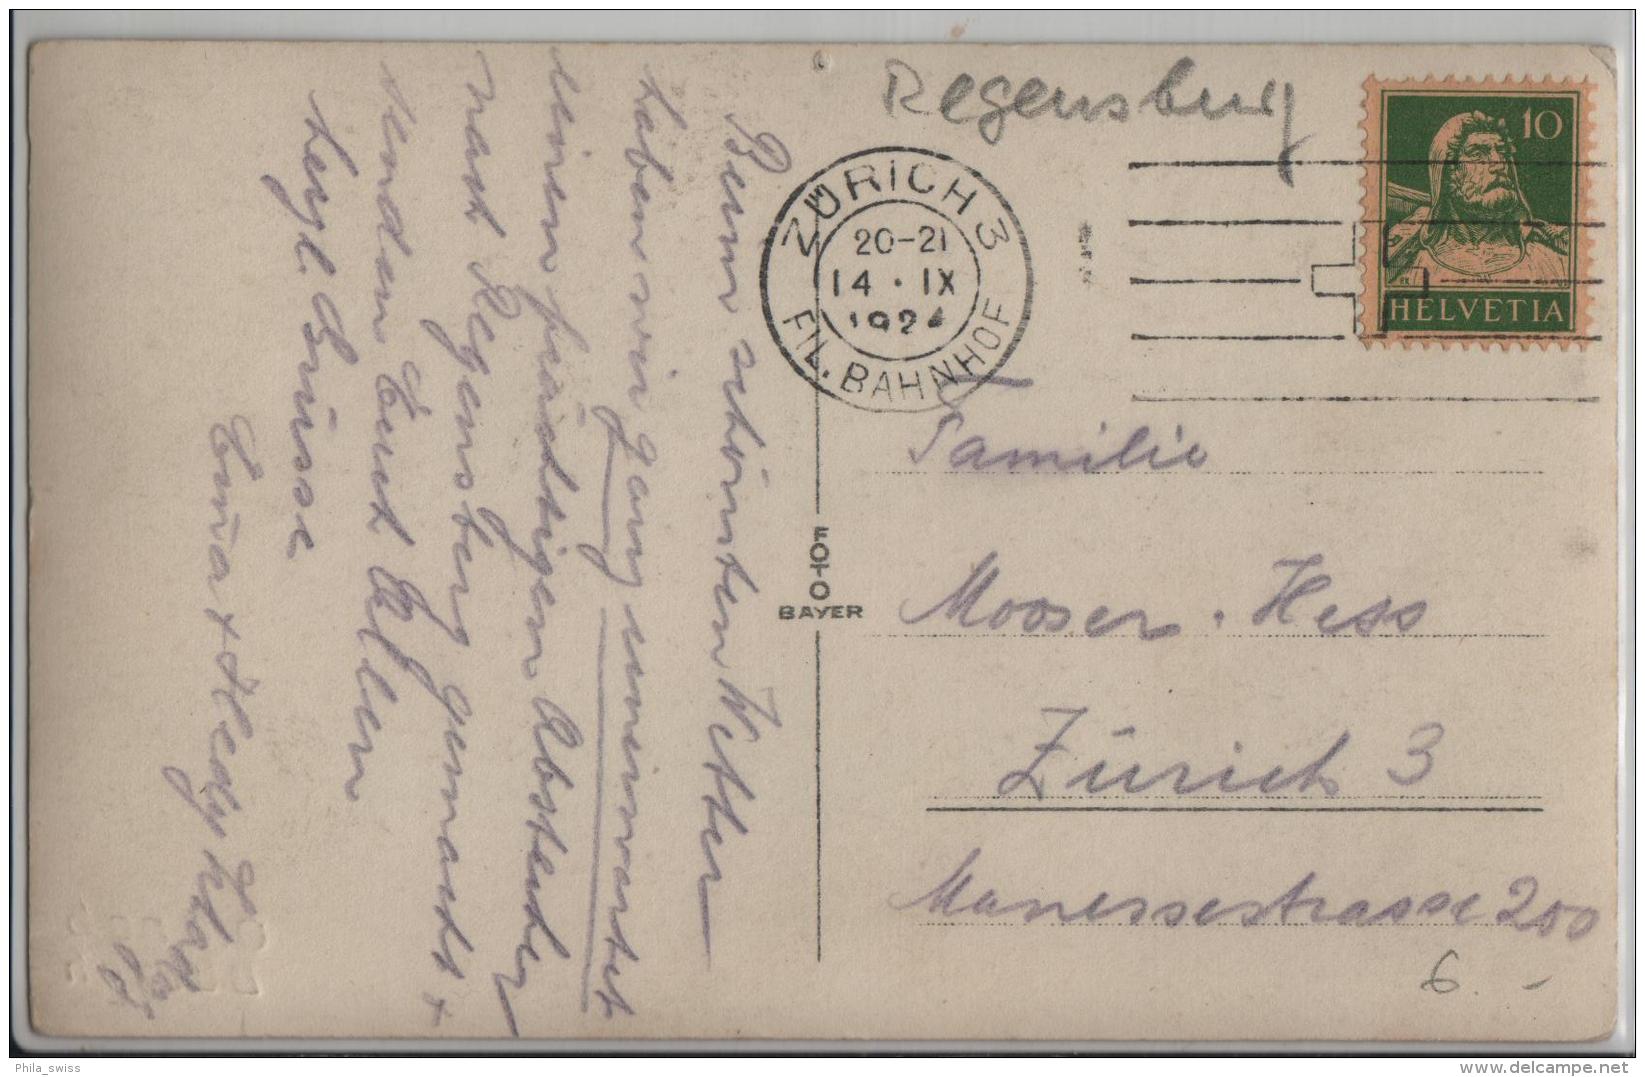 Regensburg
ZÜRICH 3
20-21
14 · IX
1924
FIL. BAHNHOF
10
HELVETIA
Beim schönsten Wetter
haben wir ganz unerwartet
einen prächtigen Abstecher
nach Regensberg gemacht +
senden Euch Allen
herzl. Grüsse
Emma + Hedy
FOTO
BAYER
Familie
Mooser-Hess
Zürich 3
Manessestrasse 200
6.-
Phila_swiss
delcampe.net